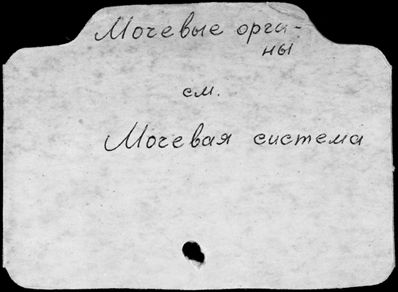 Мочевые орга-
ны
см.
Мочевая система